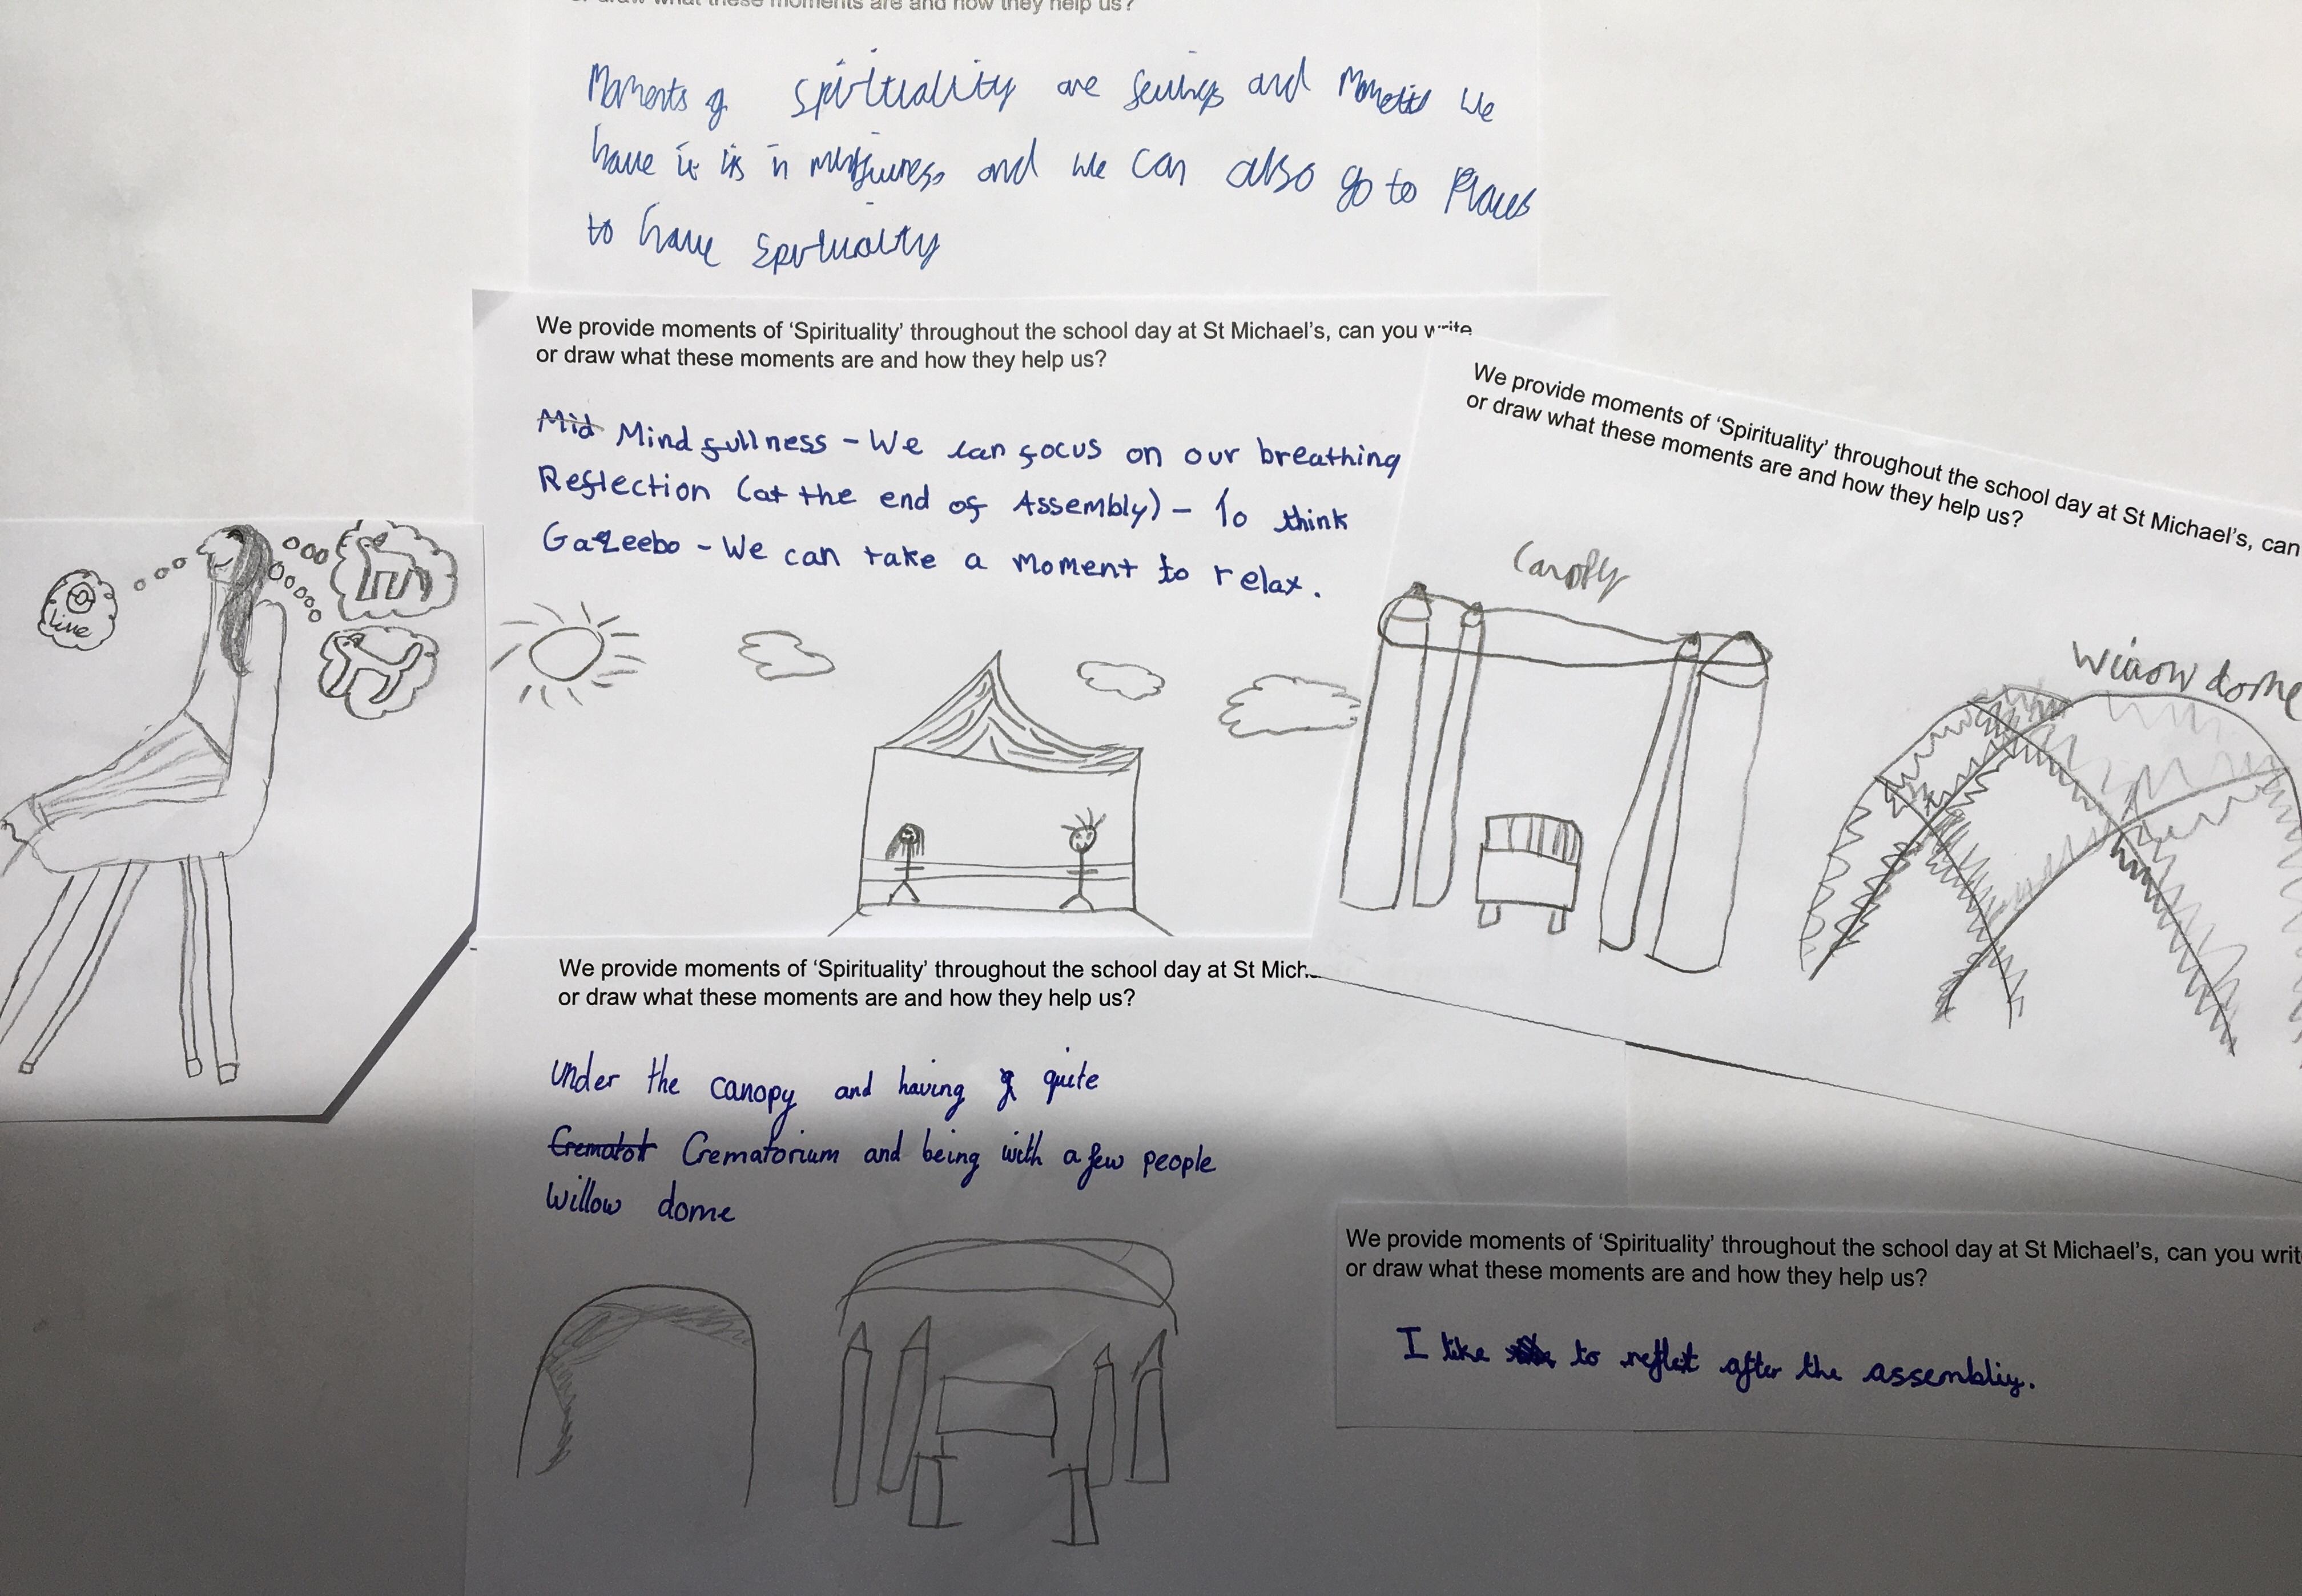 or draw what these moments are and how they help us?
Moments of spirituality are feelings and Moments we
have it is in minfulness and we can also go to Places
to have Spirtuality
We provide moments of ‘Spirituality’ throughout the school day at St Michael’s, can you write
or draw what these moments are and how they help us?
Mid Mindfullness - We can focus on our breathing
Reflection (at the end of Assembly) - To think
Gazeebo - We can take a moment to relax.
We provide moments of ‘Spirituality’ throughout the school day at St Michael’s, can
or draw what these moments are and how they help us?
Canopy
Willow dome
live
We provide moments of ‘Spirituality’ throughout the school day at St Mich
or draw what these moments are and how they help us?
Under the canopy and having quite
Cremator Crematorium and being with a few people
Willow dome
We provide moments of ‘Spirituality’ throughout the school day at St Michael’s, can you writ
or draw what these moments are and how they help us?
I like to reflect after the assembliy.